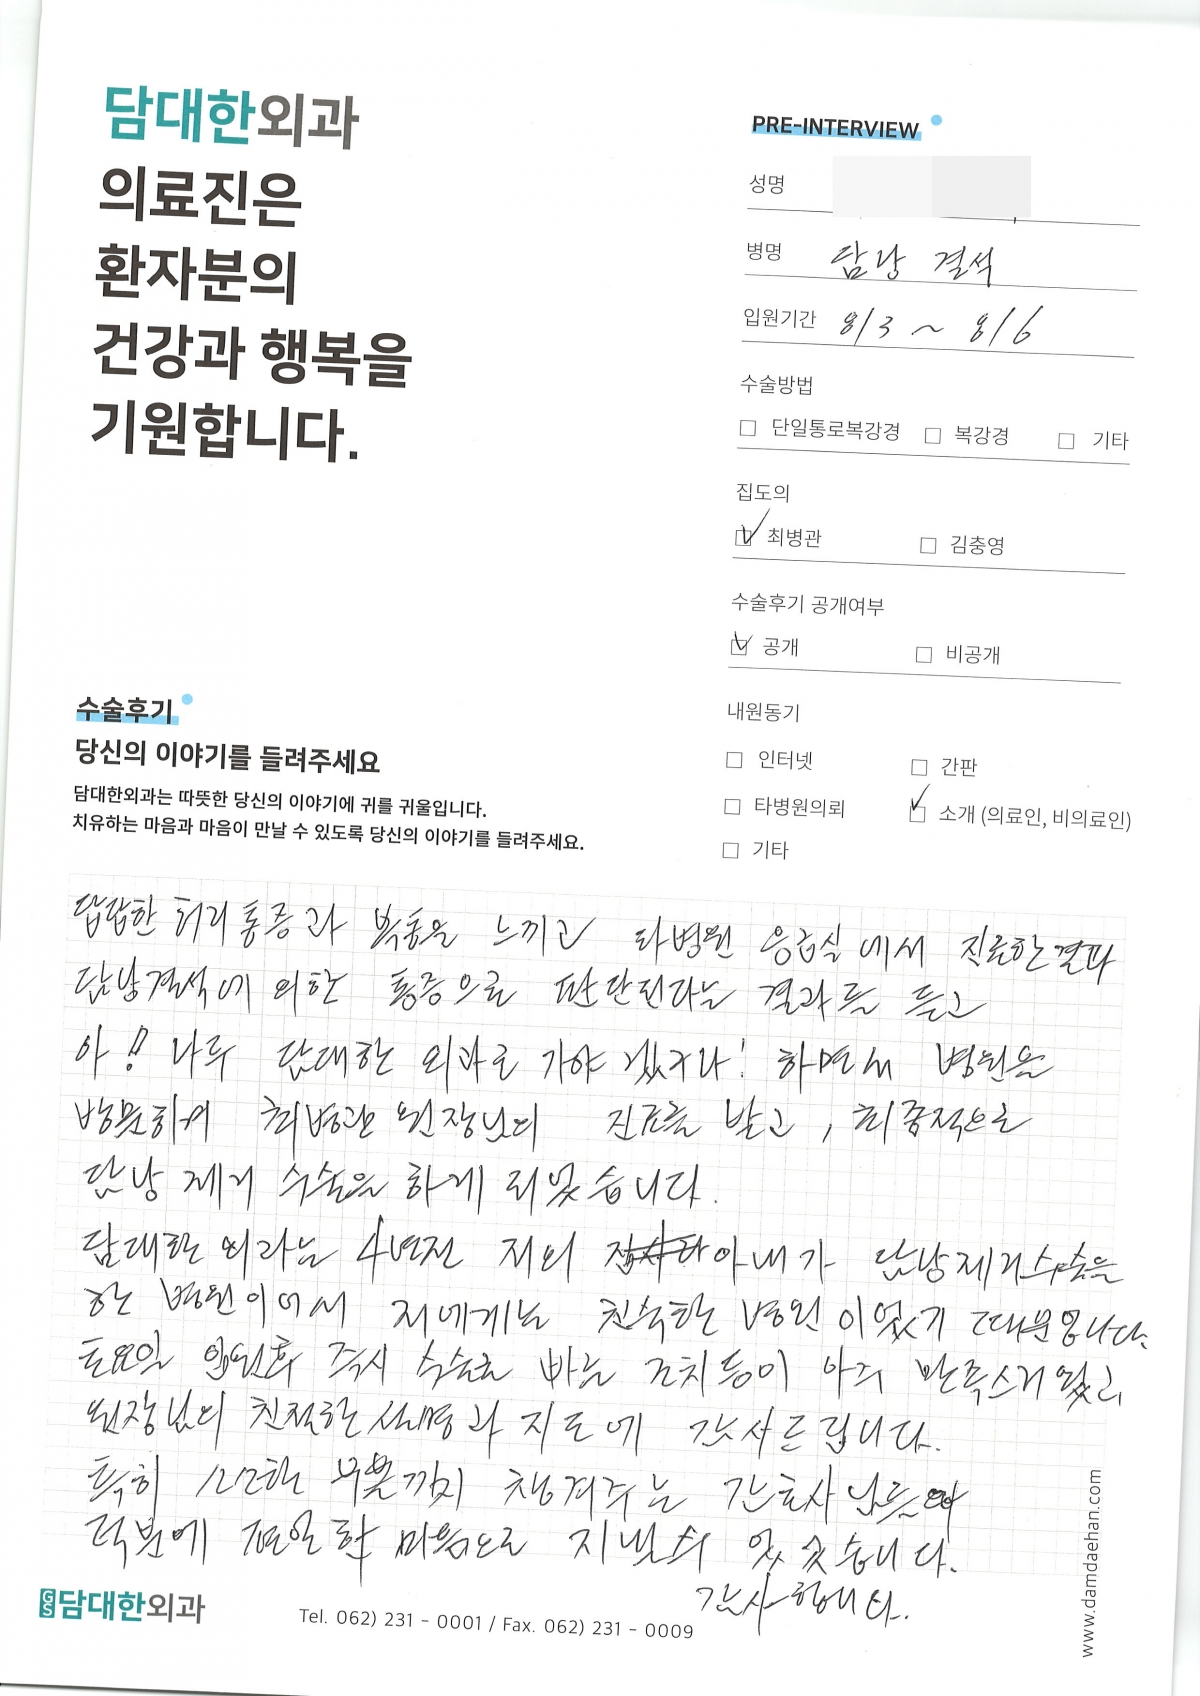 담대한외과
의료진은
환자분의
건강과 행복을
기원합니다.
PRE-INTERVIEW
성명
병명 담낭 결석
입원기간 8/3 ~ 8/6
수술방법
□ 단일통로복강경 □ 복강경 □ 기타
집도의
☑ 최병관 □ 김충영
수술후기 공개여부
☑ 공개 □ 비공개
내원동기
□ 인터넷 □ 간판
□ 타병원의뢰 ☑ 소개 (의료인, 비의료인)
□ 기타
수술후기
당신의 이야기를 들려주세요
담대한외과는 따뜻한 당신의 이야기에 귀를 귀울입니다.
치유하는 마음과 마음이 만날 수 있도록 당신의 이야기를 들려주세요.
답답한 허리통증과 복통을 느끼고 타병원 응급실에서 진료한결과
담낭결석에 의한 통증으로 판단된다는 결과를 듣고
아!! 나두 담대한 외과로 가야 겠구나! 하면서 병원을
방문하여 최병관 원장님의 진료를 받고, 최종적으로
담낭 제거 수술을 하게 되었습니다.
담대한 외과는 4년전 저의 아내가 담낭제거수술을
한 병원이어서 저에게는 친숙한 병원이었기 때문입니다.
토요일 입원후 즉시 수술로 빠른 조치등이 아주 만족스러웠고
원장님의 친절한 설명과 지도에 감사드립니다.
특히 소소한 부분까지 챙겨주는 간호사님들의
덕분에 편안한 마음으로 지낼수 있었습니다.
감사합니다.
GS 담대한외과
Tel. 062) 231 - 0001 / Fax. 062) 231 - 0009
www.damdaehan.com